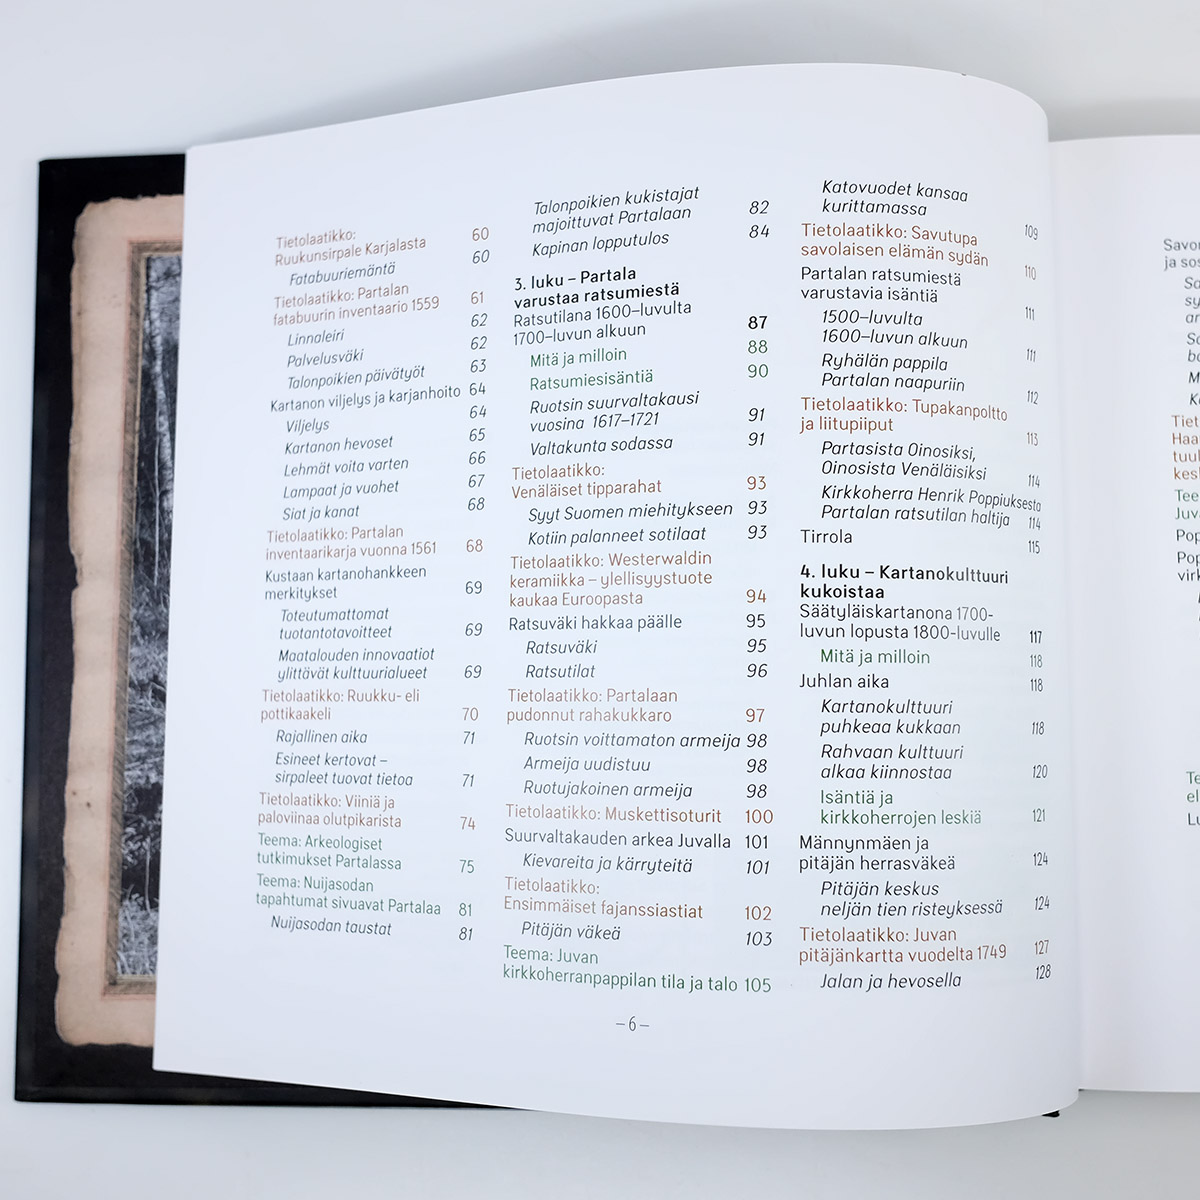 Tietolaatikko:
Ruukunsirpale Karjalasta 60
Fatabuuriemäntä 60
Tietolaatikko: Partalan
fatabuurin inventaario 1559 61
Linnaleiri 62
Palvelusväki 62
Talonpoikien päivätyöt 63
Kartanon viljelys ja karjanhoito 64
Viljelys 64
Kartanon hevoset 65
Lehmät voita varten 66
Lampaat ja vuohet 67
Siat ja kanat 68
Tietolaatikko: Partalan
inventaarikarja vuonna 1561 68
Kustaan kartanohankkeen
merkitykset 69
Toteutumattomat
tuotantotavoitteet 69
Maatalouden innovaatiot
ylittävät kulttuurialueet 69
Tietolaatikko: Ruukku- eli
pottikaakeli 70
Rajallinen aika 71
Esineet kertovat –
sirpaleet tuovat tietoa 71
Tietolaatikko: Viiniä ja
paloviinaa olutpikarista 74
Teema: Arkeologiset
tutkimukset Partalassa 75
Teema: Nuijasodan
tapahtumat sivuavat Partalaa 81
Nuijasodan taustat 81
Talonpoikien kukistajat
majoittuvat Partalaan 82
Kapinan lopputulos 84
3. luku – Partala
varustaa ratsumiestä
Ratsutilana 1600–luvulta
1700–luvun alkuun 87
Mitä ja milloin 88
Ratsumiesisäntiä 90
Ruotsin suurvaltakausi
vuosina 1617–1721 91
Valtakunta sodassa 91
Tietolaatikko:
Venäläiset tipparahat 93
Syyt Suomen miehitykseen 93
Kotiin palanneet sotilaat 93
Tietolaatikko: Westerwaldin
keramiikka – ylellisyystuote
kaukaa Euroopasta 94
Ratsuväki hakkaa päälle 95
Ratsuväki 95
Ratsutilat 96
Tietolaatikko: Partalaan
pudonnut rahakukkaro 97
Ruotsin voittamaton armeija 98
Armeija uudistuu 98
Ruotujakoinen armeija 98
Tietolaatikko: Muskettisoturit 100
Suurvaltakauden arkea Juvalla 101
Kievareita ja kärryteitä 101
Tietolaatikko:
Ensimmäiset fajanssiastiat 102
Pitäjän väkeä 103
Teema: Juvan
kirkkoherranpappilan tila ja talo 105
Katovuodet kansaa
kurittamassa 109
Tietolaatikko: Savutupa
savolaisen elämän sydän 110
Partalan ratsumiestä
varustavia isäntiä 111
1500–luvulta
1600–luvun alkuun 111
Ryhälän pappila
Partalan naapuriin 112
Tietolaatikko: Tupakanpoltto
ja liitupiiput 113
Partasista Oinosiksi,
Oinosista Venäläisiksi 114
Kirkkoherra Henrik Poppiuksesta
Partalan ratsutilan haltija 114
Tirrola 115
4. luku – Kartanokulttuuri
kukoistaa
Säätyläiskartanona 1700-
luvun lopusta 1800-luvulle 117
Mitä ja milloin 118
Juhlan aika 118
Kartanokulttuuri
puhkeaa kukkaan 118
Rahvaan kulttuuri
alkaa kiinnostaa 120
Isäntiä ja
kirkkoherrojen leskiä 121
Männynmäen ja
pitäjän herrasväkeä 124
Pitäjän keskus
neljän tien risteyksessä 124
Tietolaatikko: Juvan
pitäjänkartta vuodelta 1749 127
Jalan ja hevosella 128
–6–